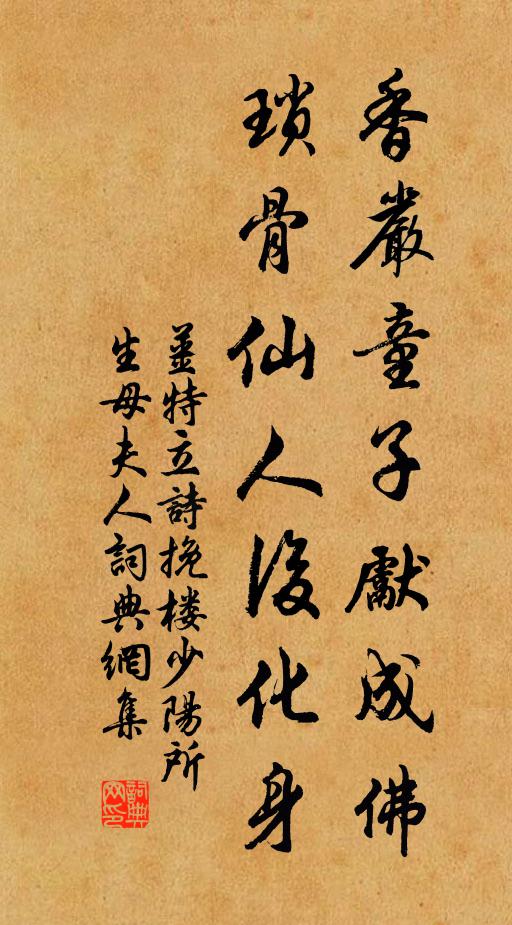 香嚴童子獻成佛
瑣骨仙人後化身
姜特立詩挽楼少陽所
生母夫人詞典網集
詞典
网印